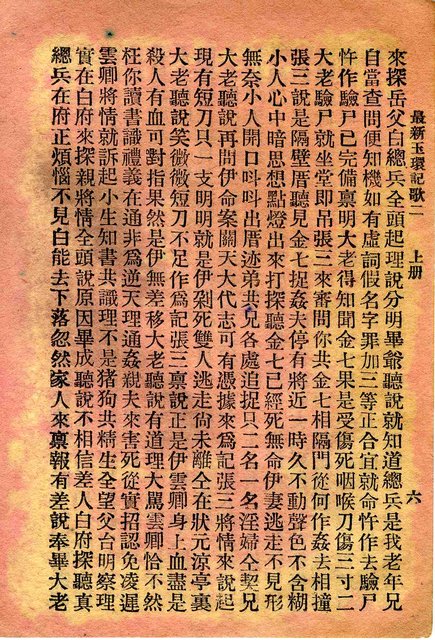 最新玉環記歌一 上册 六
來探岳父白總兵全頭起理說分明畢爺聽說就知道總兵是我老年兄
自當查問便知機如有虛詞假名字罪加三等正合宜就命忤作去驗尸
忤作驗尸已完備禀明大老得知聞金七果是受傷死咽喉刀傷三寸二
大老驗尸就坐堂即吊張三來審問你共金七相隔門從何作姦去相撞
張三說是隔壁厝聽見金七捉姦夫停有將近一時久不動聲色不含糊
小人心中暗思想點燈出來打探聽金七已經死無命伊妻逃走不見形
無奈小人開口呌呌出厝迹弟共兄各處追捉只二名一名淫婦仝契兄
大老聽說再問伊命案關天大代志可有憑據來為記張三將情來說起
現有短刀只一支明明就是伊刣死雙人逃走尙未離仝在狀元涼亭裏
大老聽說笑微微短刀不足作為記張三禀說正是伊雲卿身上血盡是
殺人有血可對指果然是伊無差移大老聽說有道理大罵雲卿恰不然
枉你讀書識禮義在通非為逆天理通姦親夫來害死從實招認免凌遲
雲卿將情就訴起小生知書共識理不是猪狗共精生全望父台明察理
實在白府來探親將情全頭說原因畢成聽說不相信差人白府探聽真
總兵在府正煩惱不見白能去下落忽然家人來禀報有差說奉畢大老